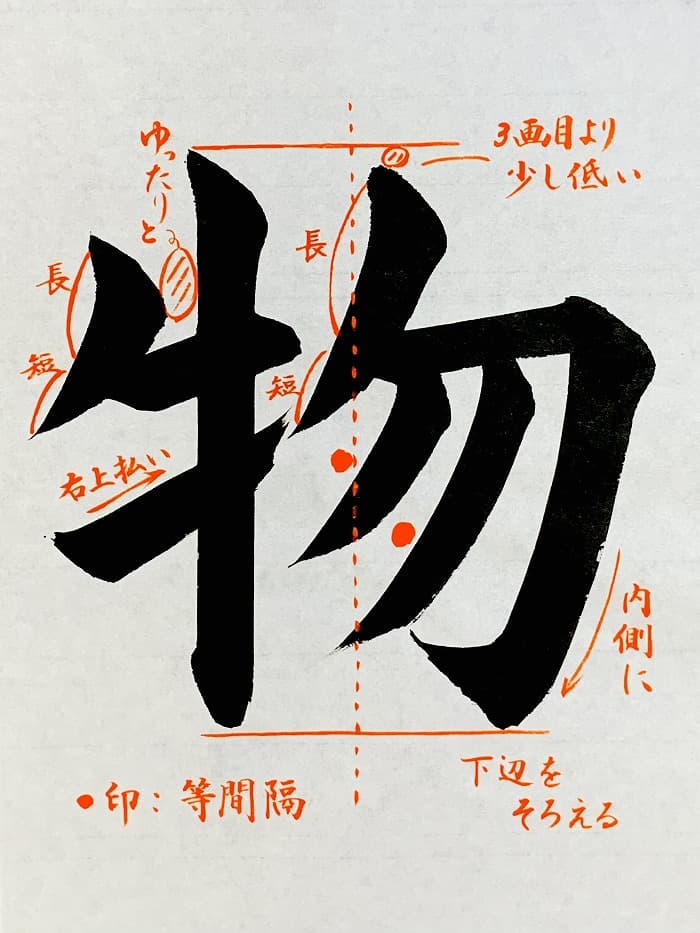 物
ゆったりと
3画目より
少し低い
長
長
短
短
右上払い
内側に
下辺を
そろえる
●印：等間隔